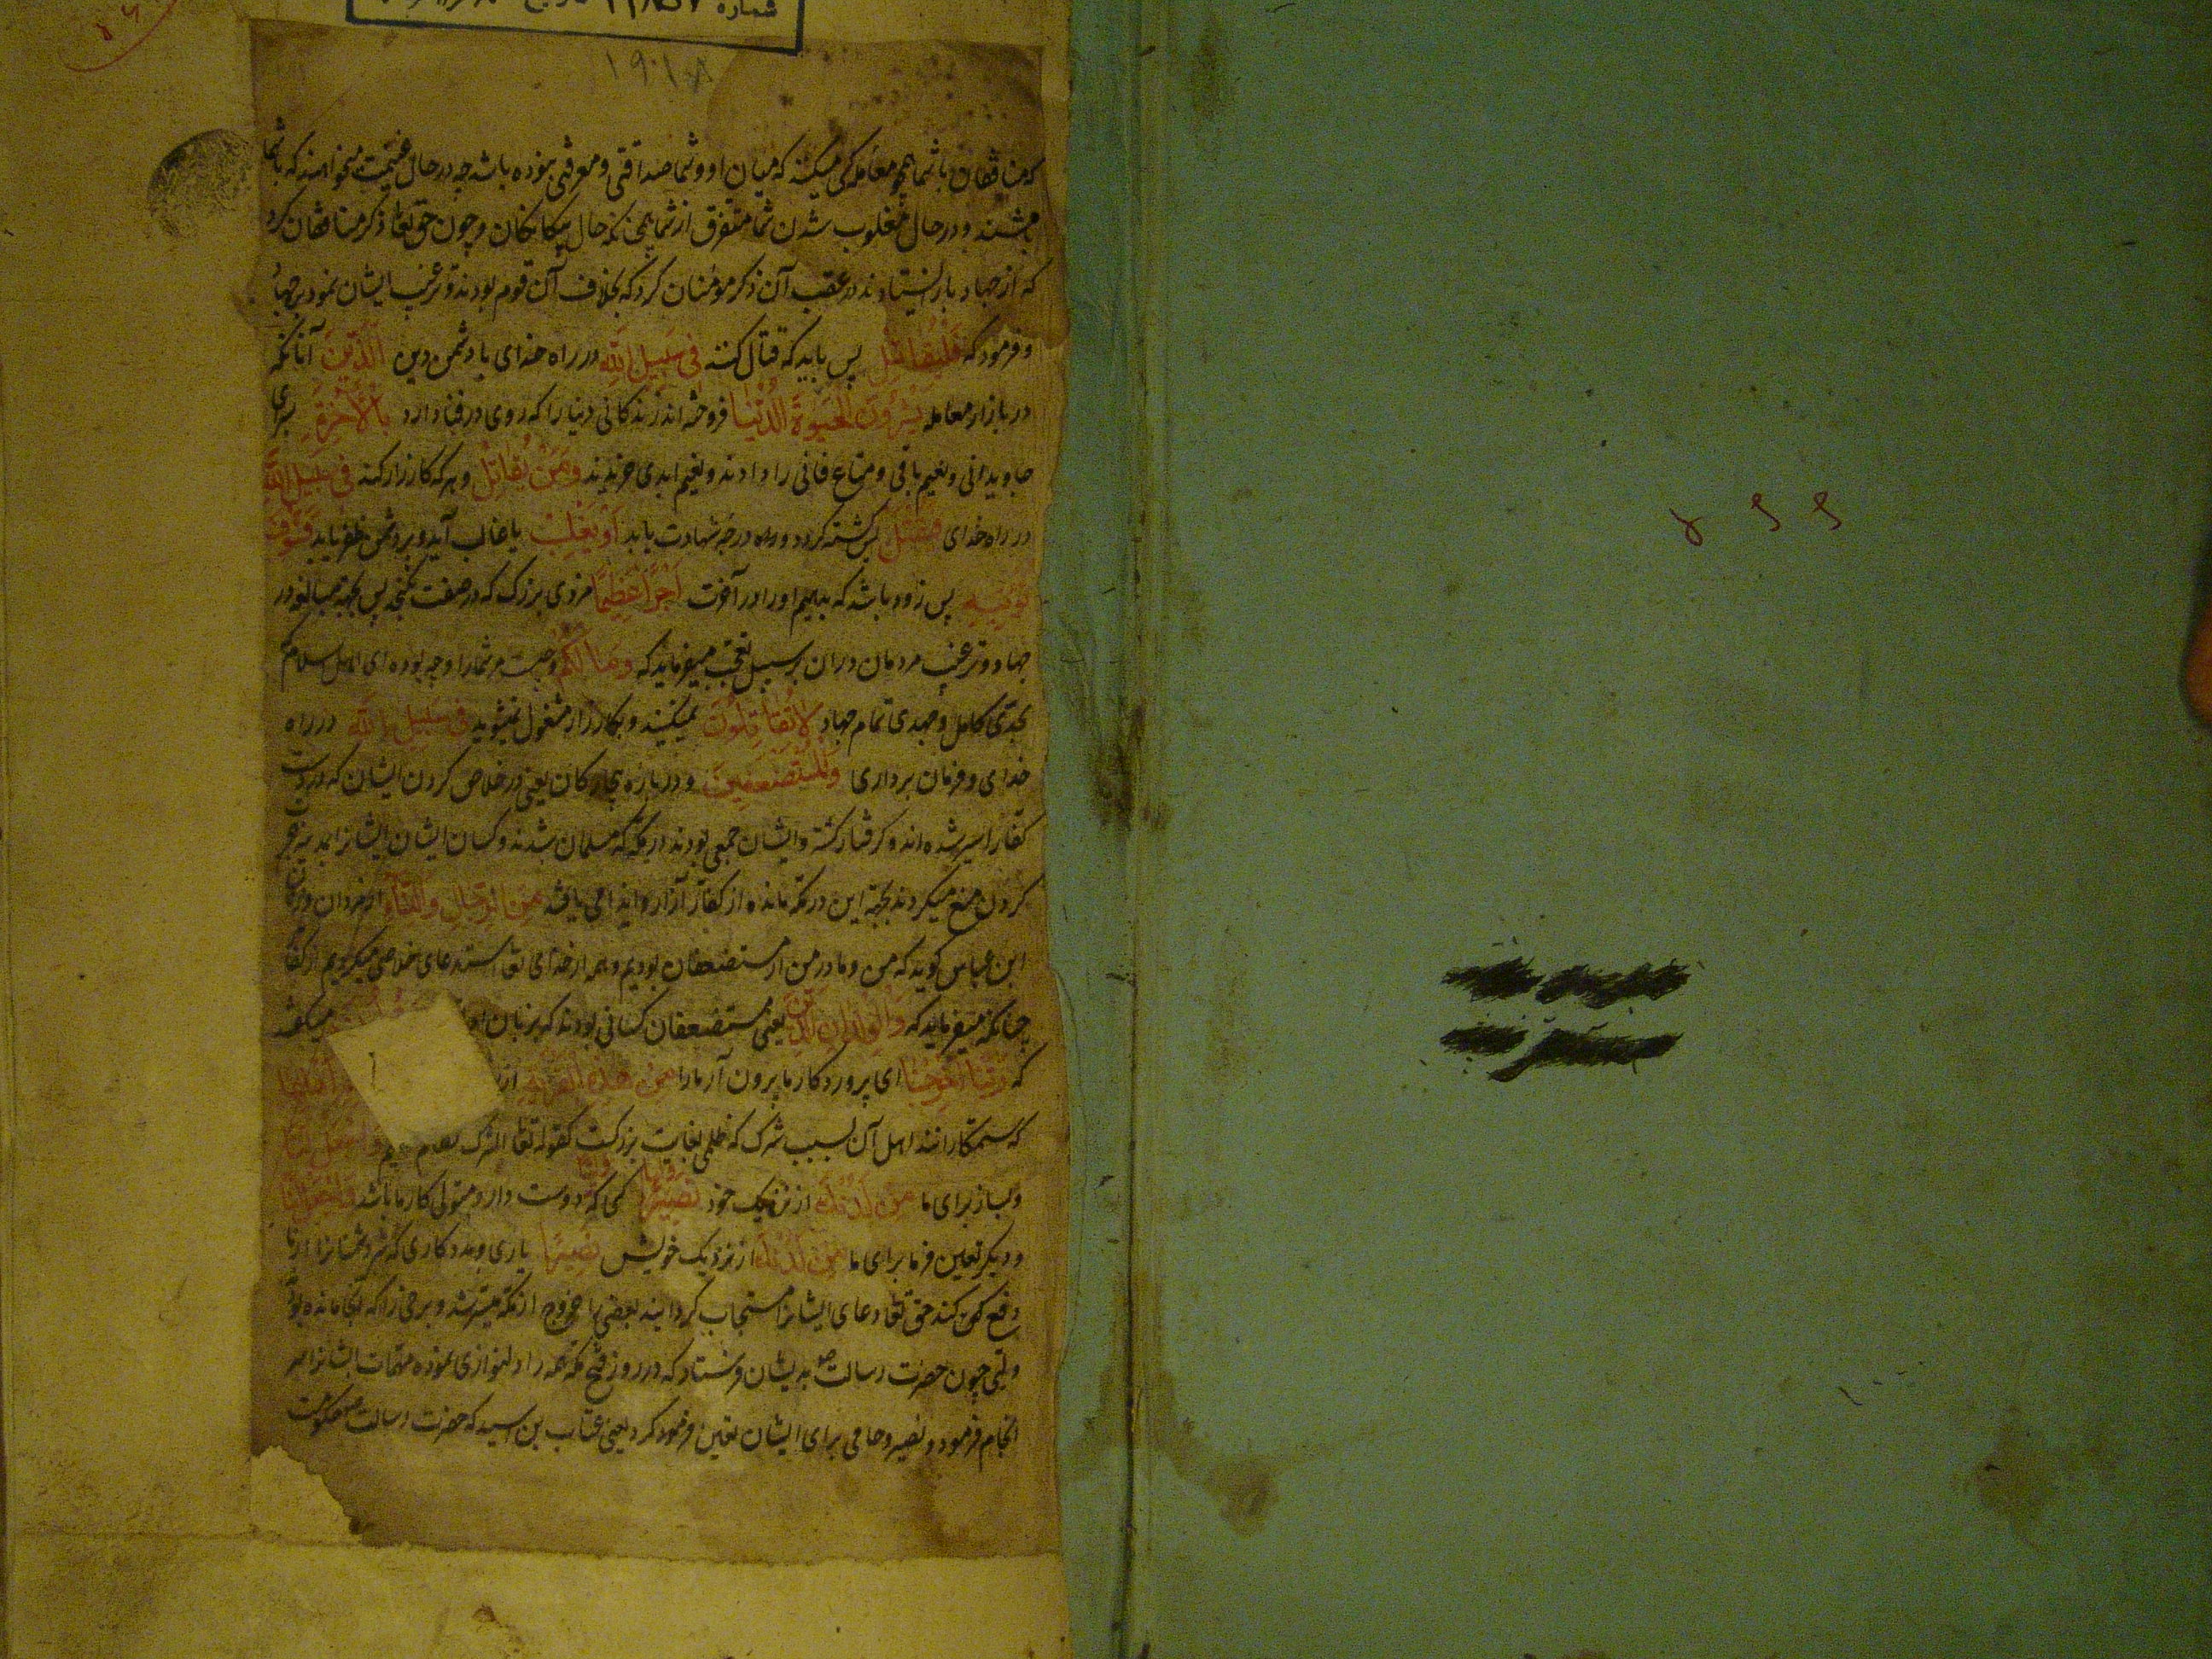 شماره
۱۹۰۱۰۸
که منافقان با شما همچو معامله کسی میکنند که میان او و شما صداقتی و معرفتی نبوده باشد چه در حال غنیمت میخواهند که با شما
باشند و در حال مغلوب شدن شما متفرق از شما همچنانکه حال بیکانکان و چون حق تعا ذکر منافقان کرد
که از جهاد باز ایستادند در عقب آن ذکر مؤمنان کرد که بخلاف آن قوم بودند و ترغیب ایشان نمود بر جهاد
و فرمود که فَلْیُقَاتِلْ پس باید که قتال کنند فِی سَبِیلِ اللّهِ در راه خدای با دشمن دین الَّذِینَ آنانکه
در بازار معامله یَشْرُونَ الْحَیٰوةَ الدُّنْیَا فروخته اند زندکانی دنیا را که روی در فنا دارد بِالْاٰخِرَةِ بسرای
جاویدانی و نعیم باقی و متاع فانی را دادند و نعیم ابدی خریدند وَمَنْ یُقَاتِلْ و هر که کارزار کند فِی سَبِیلِ اللّهِ
در راه خدای فَیُقْتَلْ پس کشته کردد و درجه شهادت یابد اَوْ یَغْلِبْ یا غالب آید و بر دشمن ظفر یابد فَسَوْفَ
نُؤْتِیهِ پس زود باشد که بدهیم او را در آخرت اَجْرًا عَظِیمًا مزدی بزرک که در صفت نکنجد پس بجهة مبالغه در
جهاد و ترغیب مردمان دران بر سبیل تعجب میفرماید که وَمَا لَکُمْ و چیست مر شما را و چه بوده ای اهل اسلام که
بجدی کامل و جهدی تمام جهاد لَا تُقَاتِلُونَ نمیکنید و بکارزار مشغول نمیشوید فِی سَبِیلِ اللّهِ در راه
خدای و فرمان برداری وَالْمُسْتَضْعَفِینَ و درباره بیچارکان یعنی در خلاص کردن ایشان که در دست
کفار اسیر شده اند و کرفتار کشته و ایشان جمعی بودند در مکه که مسلمان شدند و کسان ایشان ایشانرا بمدینه هجرت
کردن منع میکردند بجهة این در مکه مانده از کفار آزار و ایذا می یافتند مِنَ الرِّجَالِ وَالنِّسَاءِ از مردان و زنان
ابن عباس کوید که من و مادر من از مستضعفان بودیم و همه از خدای تعا استدعای خلاصی میکردیم از کفار
چنانکه میفرماید که وَالْوِلْدَانِ الَّذِینَ یعنی مستضعفان کسانی بودند که بزبان میکفتند
که رَبَّنَا اَخْرِجْنَا ای پروردکار ما بیرون آر ما را مِنْ هٰذِهِ الْقَرْیَةِ از اَهْلُهَا
که ستمکارانند اهل آن بسبب شرک که ظلمی بغایت بزرکست کقوله تعا الشرک لظلم عظیم وَاجْعَلْ لَنَا
و بساز برای ما مِنْ لَدُنْکَ از نزدیک خود کسی که دوست دارد و متولی کار ما باشد وَاجْعَلْ لَنَا
و دیکر تعیین فرما برای ما مِنْ لَدُنْکَ از نزدیک خویش نَصِیرًا یاری و مددکاری که شر دشمنانرا از ما
دفع کند حق تعا دعای ایشانرا مستجاب کردانید بعضی را خروج از مکه میسر شد و برخی را که آنجا مانده بودند
چون حضرت رسالت بدیشان فرستاد که در روز فتح مکه همه را دلنوازی نموده مهمات ایشانرا سر
انجام فرمود و نصیر و حامی برای ایشان تعین فرمود کرد یعنی عتاب بن اسید که حضرت رسالت حکومت